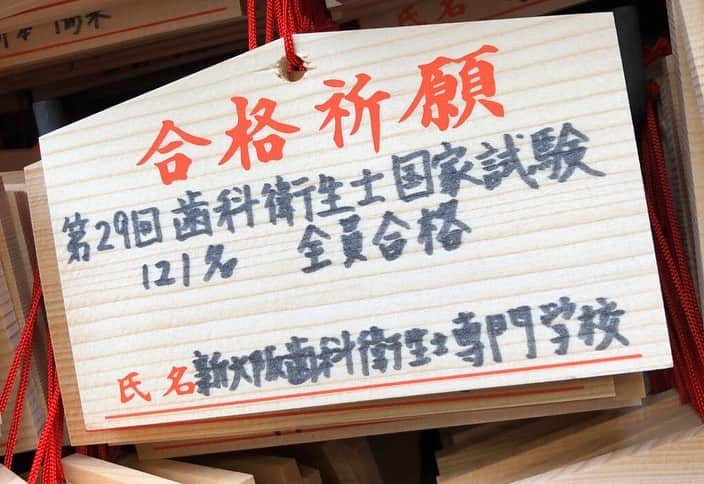 合格祈願
第29回歯科衛生士国家試験
121名 全員合格
氏名 新大阪歯科衛生士専門学校